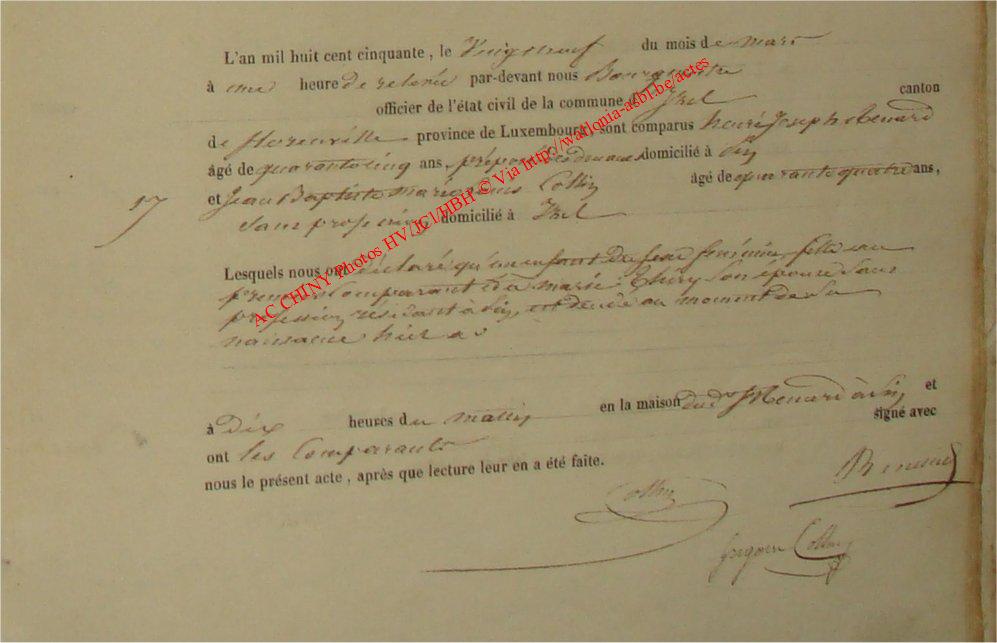 L'an mil huit cent cinquante, le Vingt neuf du mois de mars
à une heure de relevée par-devant nous Bourgmestre
officier de l'état civil de la commune d' Izel canton
de Florenville province de Luxembourg, sont comparus henri Joseph Renard
âgé de quarante cinq ans, préposé des douanes domicilié à Pin
et Jean Baptiste Marie Collin âgé de quarante quatre ans,
17
Sans profession domicilié à Izel
Lesquels nous ont déclaré qu'un enfant du sexe féminin fille du
premier Comparant et de marie Thiry Son épouse Sans
profession résidant à Pin, est décédé au moment de Sa
naissance hier a
à Dix heures du mattin en la maison dud. Renard à Pin et
signé avec
ont les Comparants
nous le présent acte, après que lecture leur en a été faite.
Collin
Renard
Collin
AC CHINY Photos HV/JCl/HBH © Via http://wallonia-asbl.be/actes